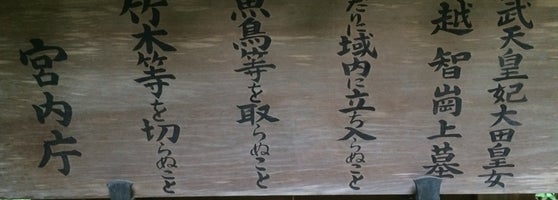 武天皇妃大田皇女
越智崗上墓
たりに域内に立ち入らぬこと
魚鳥等を取らぬこと
竹木等を切らぬこと
宮内庁